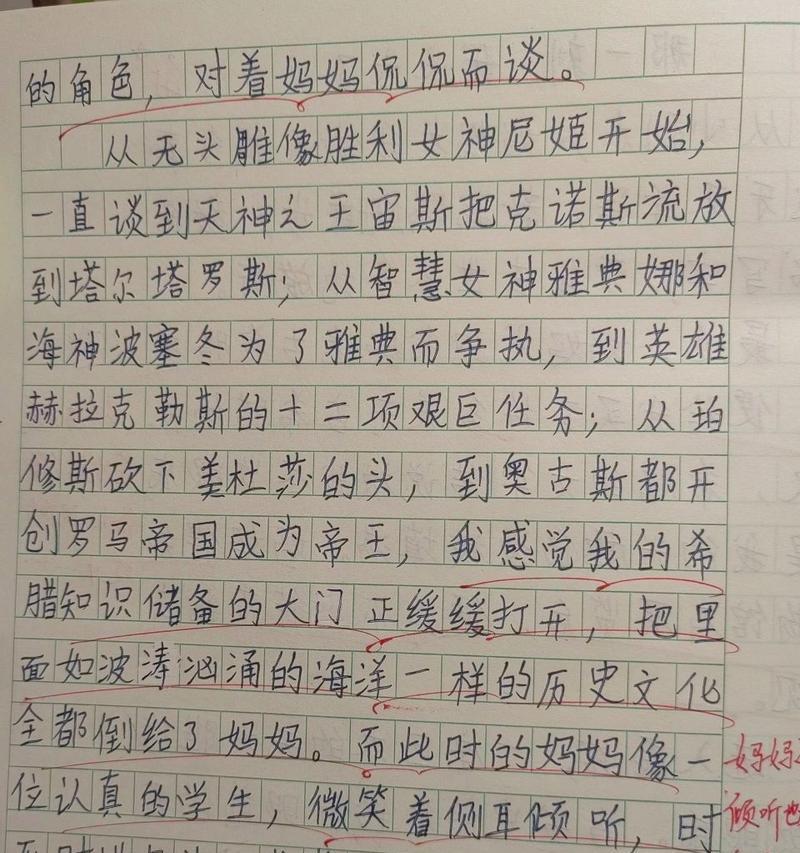 的角色，对着妈妈侃侃而谈。
从无头雕像胜利女神尼姬开始，
一直谈到天神之王宙斯把克诺斯流放
到塔尔塔罗斯；从智慧女神雅典娜和
海神波塞冬为了雅典而争执，到英雄
赫拉克勒斯的十二项艰巨任务；从珀
修斯砍下美杜莎的头，到奥古斯都开
创罗马帝国成为帝王，我感觉我的希
腊知识储备的大门正缓缓打开，把里
面如波涛汹涌的海洋一样的历史文化
全都倒给了妈妈。而此时的妈妈像一
位认真的学生，微笑着侧耳倾听，时
妈妈
倾听也